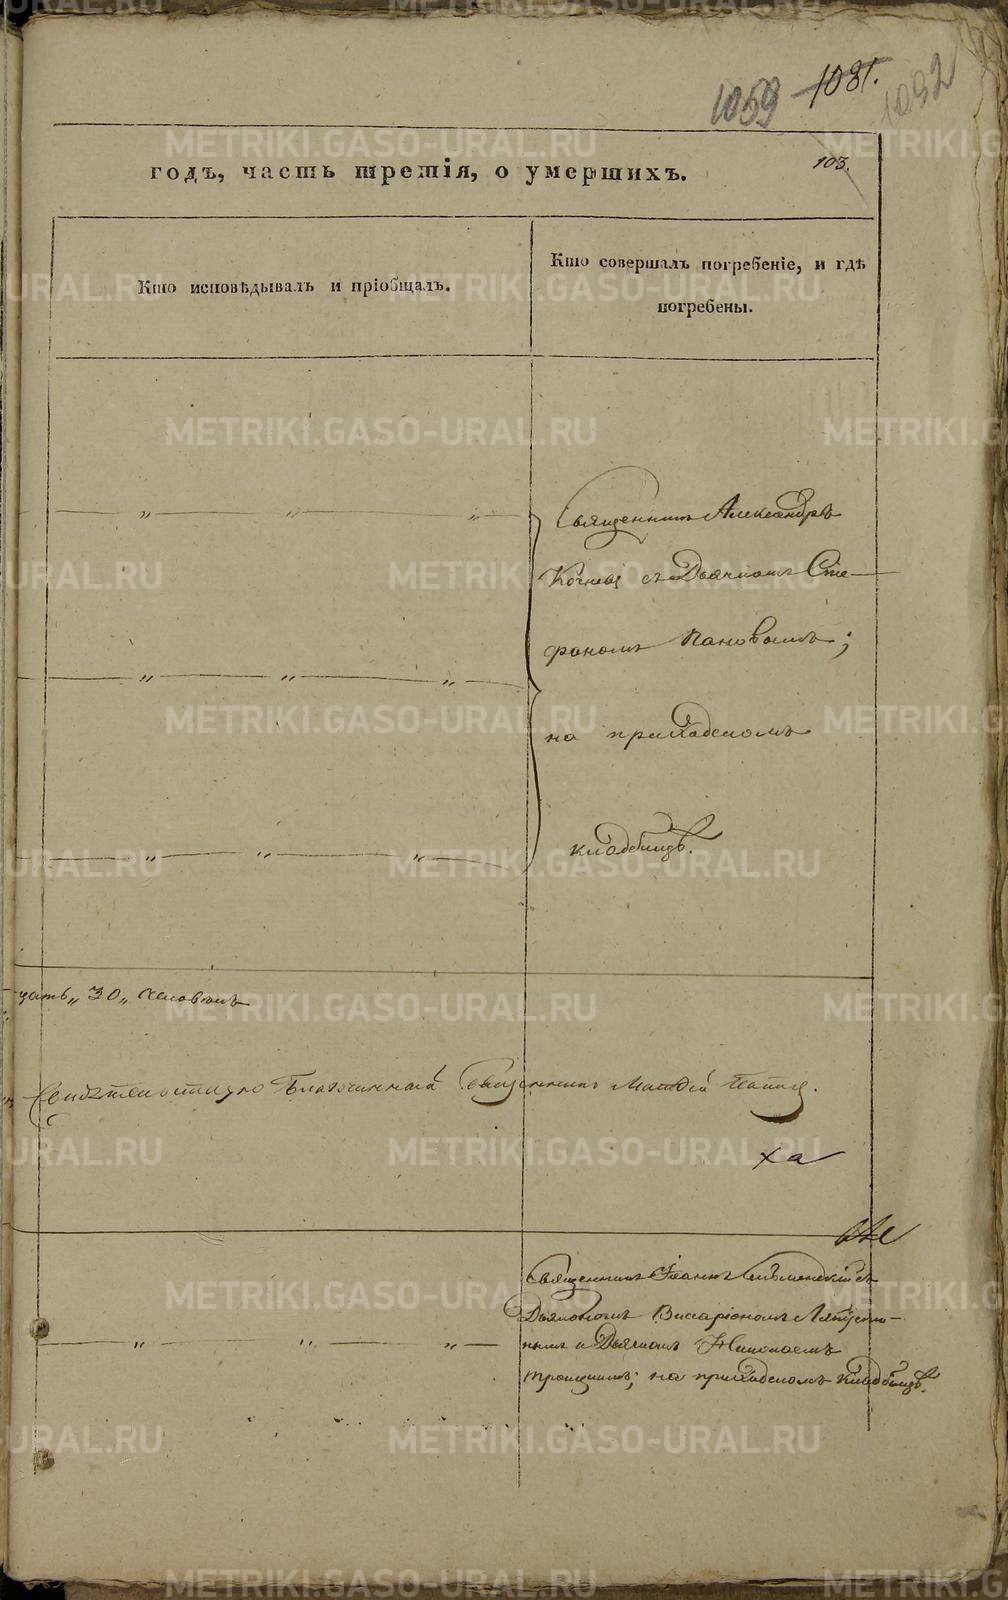 1059 1081. 1092
103.
годъ, часть третія, о умершихъ.
Кто исповѣдывалъ и пріобщалъ.
Кто совершалъ погребеніе, и гдѣ
погребены.
Священникъ Александръ
съ Дьячкомъ Сте-
фаномъ Пановымъ;
на приходскомъ
кладбищѣ.
цать „30„ человѣкъ
Благочинный Священникъ
ха
Священникъ Іоаннъ съ
Дьякономъ Висаріономъ
и Дьячкомъ Николаемъ
на приходскомъ кладбищѣ.
METRIKI.GASO-URAL.RU